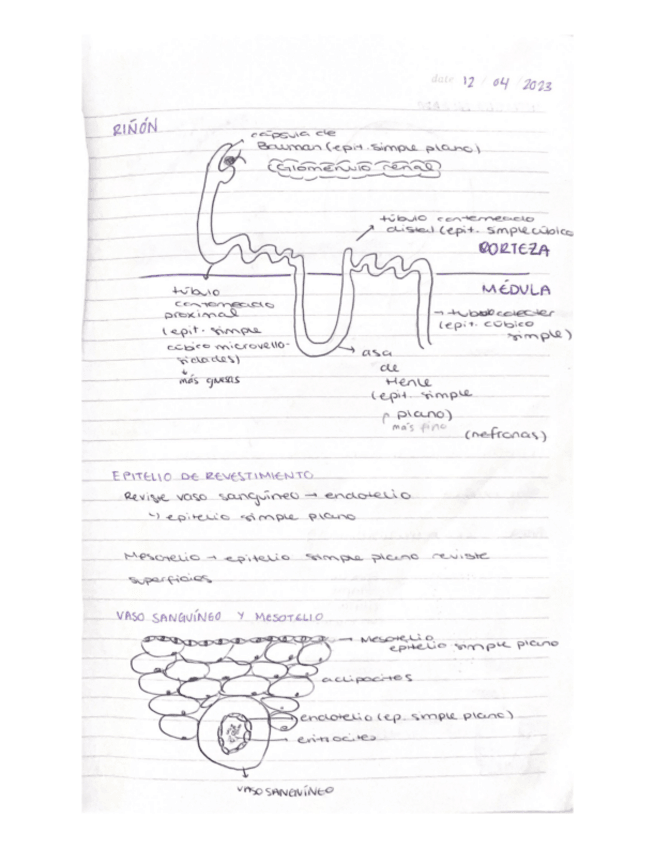 date 12 / 04 / 2023
RIÑÓN
cápsula de
Bowman (epit. simple plano)
Glomerulo renal
túbulo contorneado
distal (epit. simple cúbico
CORTEZA
MÉDULA
túbulo
contorneado
proximal
(epit. simple
cúbico microvello-
sidades)
más gruesas
→ tubo colector
(epit. cúbico
simple)
→ asa
de
Henle
(epit. simple
plano)
más fino
(nefronas)
EPITELIO DE REVESTIMIENTO
Reviste vaso sanguíneo → endotelio
↳ epitelio simple plano
Mesotelio → epitelio simple plano reviste
superficies
VASO SANGUÍNEO Y MESOTELIO
→ Mesotelio
epitelio simple plano
adipocitos
endotelio (ep. simple plano)
eritrocitos
VASO SANGUÍNEO